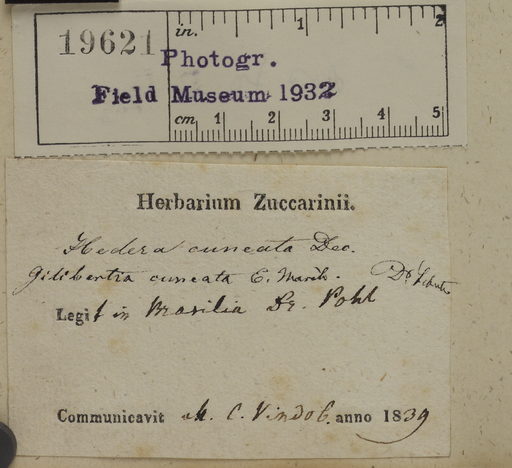 19621
in. 1 2
Photogr.
Field Museum 1932
cm 1 2 3 4 5
Herbarium Zuccarinii.
Hedera cuneata Dec.
Gilibertia cuneata E. March.
Legit in Brasilia Dr. Pohl
Communicavit M. C. Vindob. anno 1839